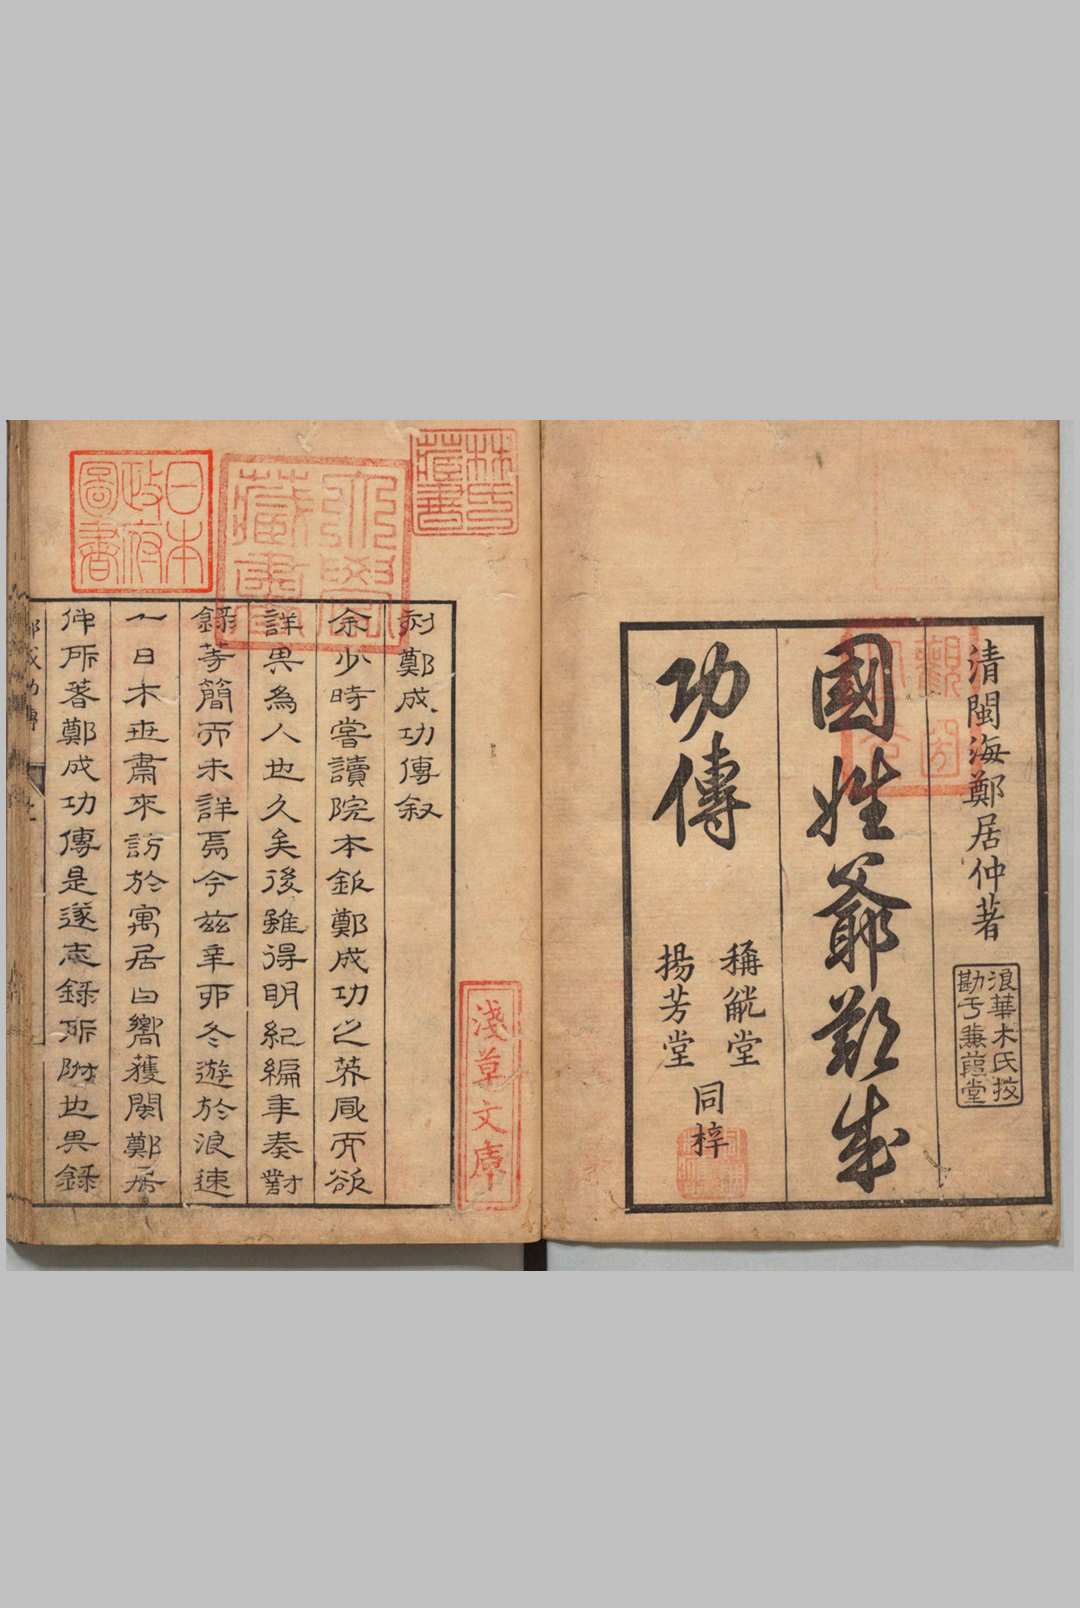 清閩海鄭居仲著
浪華木氏挍
勘于蒹葭堂
國姓爺鄭成
功傳
稱觥堂
揚芳堂
同梓
林氏
藏書
淺草文庫
日本
政府
圖書
藏書
刻鄭成功傳叙
余少時嘗讀院本叙鄭成功之㮣咸而欲
詳其為人也久矣後雖得明紀編年奏對
錄等簡而未詳焉今茲辛卯冬遊於浪速
一日木世肅來訪於寓居曰嚮獲閩鄭居
仲所著鄭成功傳是遂志錄所附也其錄